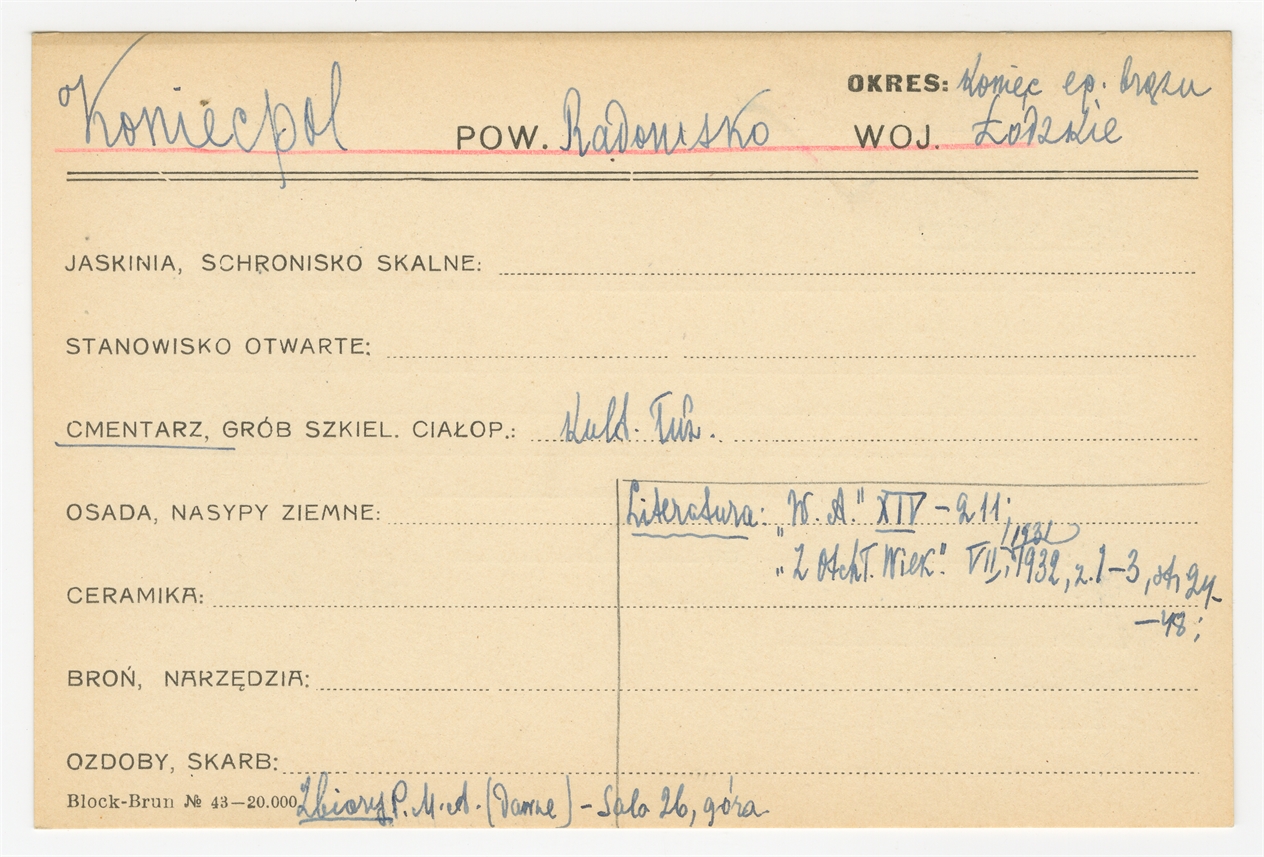 OKRES: Koniec ep. brązu
Koniecpol POW. Radomsko WOJ. Łódzkie
JASKINIA, SCHRONISKO SKALNE:
STANOWISKO OTWARTE:
CMENTARZ, GRÓB SZKIEL. CIAŁOP.: Kult. Łuż.
OSADA, NASYPY ZIEMNE: Literatura: "W. A." XIV – 211;
1932
"Z Otchł. Wiek." VII, 1932, z. 1–3, str.
CERAMIKA:
–48;
BROŃ, NARZĘDZIA:
OZDOBY, SKARB:
Block-Brun № 43—20.000 Zbiory P. M. A. (Dawne) – Sala 26, góra